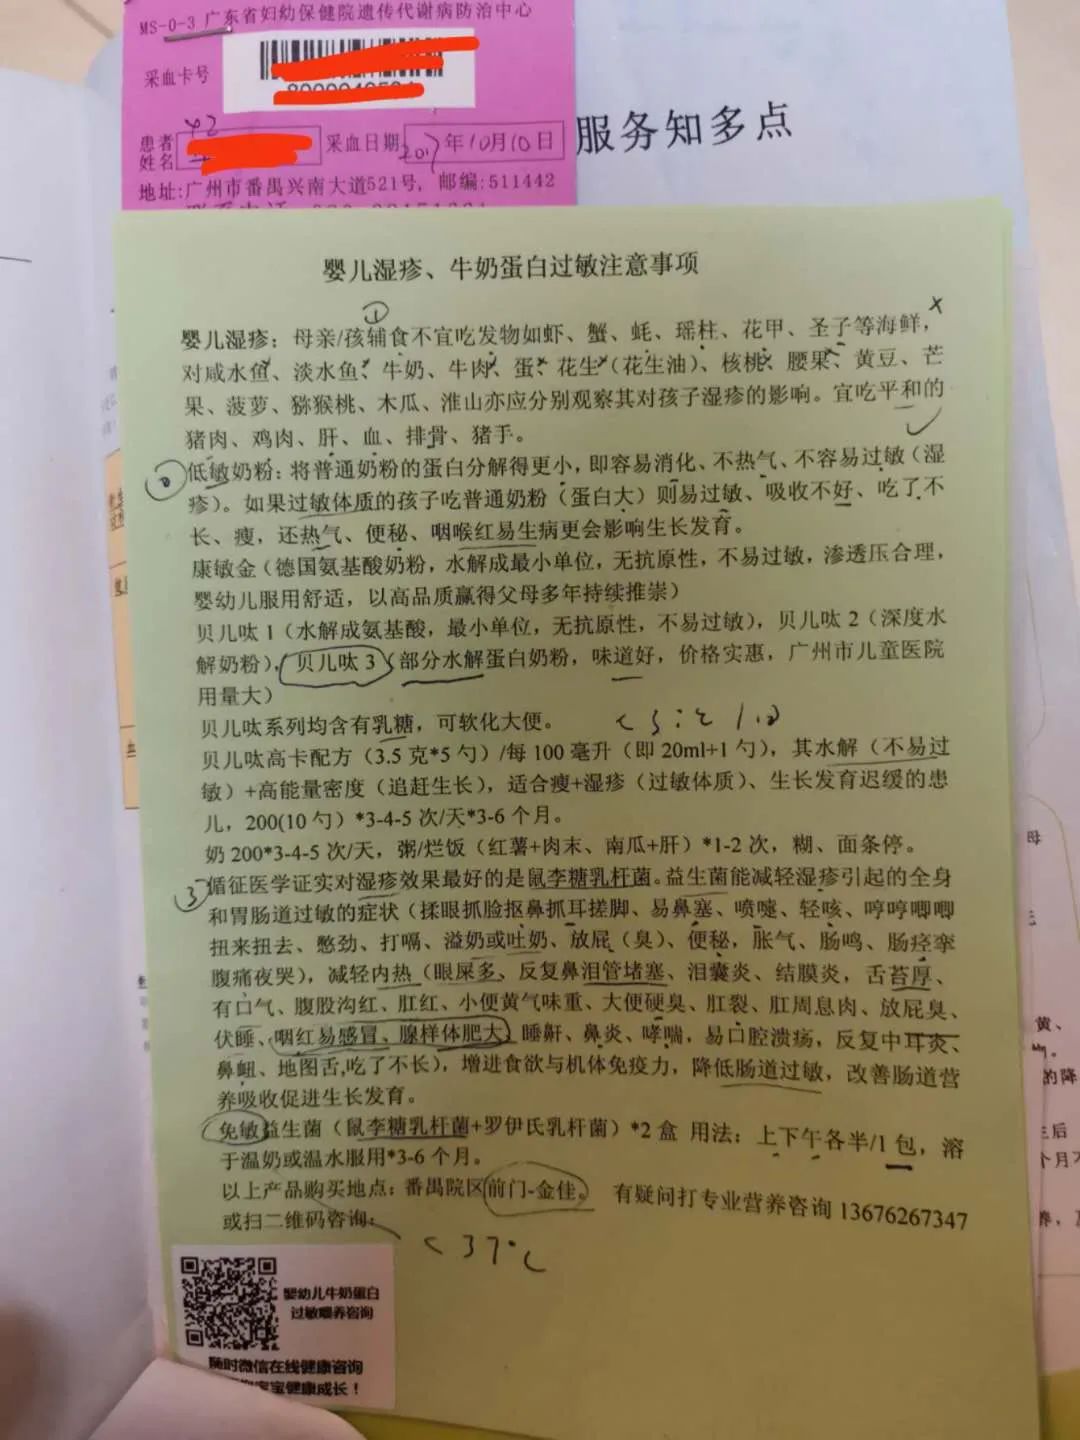 MS-0-3 广东省妇幼保健院遗传代谢病防治中心
采血卡号
患者
姓名
采血日期 2017年10月10日
地址:广州市番禺兴南大道521号, 邮编:511442
服务知多点
婴儿湿疹、牛奶蛋白过敏注意事项
①
婴儿湿疹：母亲/孩辅食不宜吃发物如虾、蟹、蚝、瑶柱、花甲、圣子等海鲜，
对咸水鱼、淡水鱼、牛奶、牛肉、蛋、花生（花生油）、核桃、腰果、黄豆、芒
果、菠萝、猕猴桃、木瓜、淮山亦应分别观察其对孩子湿疹的影响。宜吃平和的
猪肉、鸡肉、肝、血、排骨、猪手。
②
低敏奶粉：将普通奶粉的蛋白分解得更小，即容易消化、不热气、不容易过敏（湿
疹）。如果过敏体质的孩子吃普通奶粉（蛋白大）则易过敏、吸收不好、吃了不
长、瘦，还热气、便秘、咽喉红易生病更会影响生长发育。
康敏金（德国氨基酸奶粉，水解成最小单位，无抗原性，不易过敏，渗透压合理，
婴幼儿服用舒适，以高品质赢得父母多年持续推崇）
贝儿呔 1（水解成氨基酸，最小单位，无抗原性，不易过敏），贝儿呔 2（深度水
解奶粉），贝儿呔 3（部分水解蛋白奶粉，味道好，价格实惠，广州市儿童医院
用量大）
贝儿呔系列均含有乳糖，可软化大便。
贝儿呔高卡配方（3.5 克*5 勺）/每 100 毫升（即 20ml+1 勺），其水解（不易过
敏）+高能量密度（追赶生长），适合瘦+湿疹（过敏体质）、生长发育迟缓的患
儿，200(10 勺）*3-4-5 次/天*3-6 个月。
奶 200*3-4-5 次/天，粥/烂饭（红薯+肉末、南瓜+肝）*1-2 次，糊、面条停。
③
循征医学证实对湿疹效果最好的是鼠李糖乳杆菌。益生菌能减轻湿疹引起的全身
和胃肠道过敏的症状（揉眼抓脸抠鼻抓耳搓脚、易鼻塞、喷嚏、轻咳、哼哼唧唧
扭来扭去、憋劲、打嗝、溢奶或吐奶、放屁（臭）、便秘，胀气、肠鸣、肠痉挛
腹痛夜哭），减轻内热（眼屎多、反复鼻泪管堵塞、泪囊炎、结膜炎，舌苔厚、
有口气、腹股沟红、肛红、小便黄气味重、大便硬臭、肛裂、肛周息肉、放屁臭、
伏睡、咽红易感冒、腺样体肥大）睡鼾、鼻炎、哮喘，易口腔溃疡，反复中耳炎、
鼻衄、地图舌,吃了不长），增进食欲与机体免疫力，降低肠道过敏，改善肠道营
养吸收促进生长发育。
免敏益生菌（鼠李糖乳杆菌+罗伊氏乳杆菌）*2 盒 用法：上下午各半/1 包，溶
于温奶或温水服用*3-6 个月。
以上产品购买地点：番禺院区前门-金佳。 有疑问打专业营养咨询 13676267347
或扫二维码咨询：
<37℃
婴幼儿牛奶蛋白
过敏喂养咨询
随时微信在线健康咨询
宝宝健康成长！